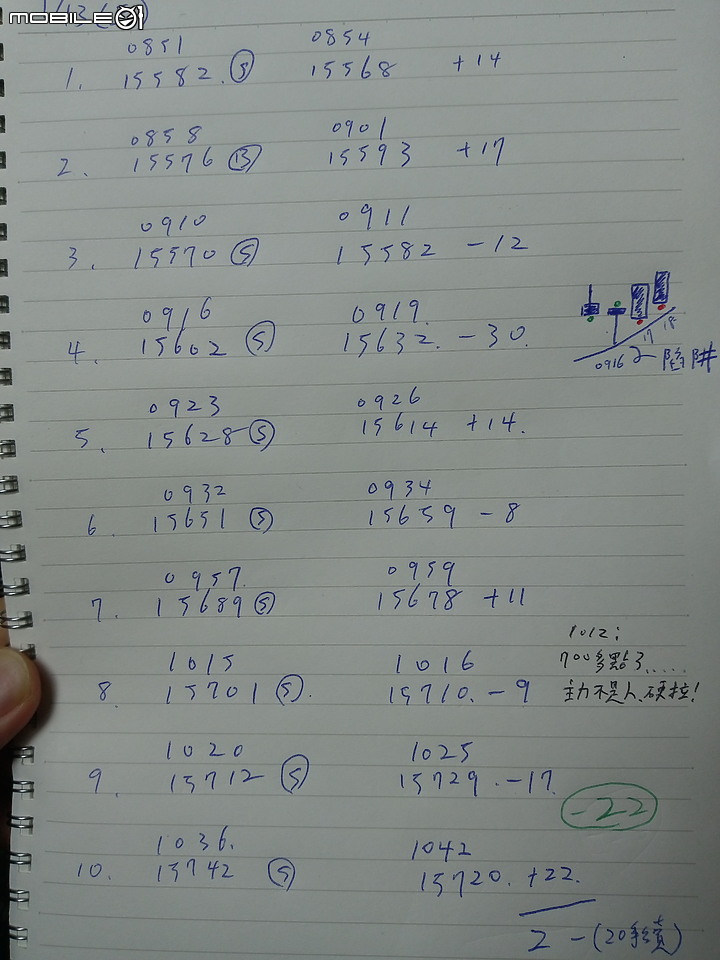 MOBILE01
1/13
0851 0854
1. 15582 Ⓢ 15568 +14
0858 0901
2. 15576 Ⓑ 15593 +17
0910 0911
3. 15570 Ⓢ 15582 -12
0916 0919
4. 15602 Ⓢ 15632. -30.
0916 17 18
陷阱
0923 0926
5. 15628 Ⓢ 15614 +14.
0932 0934
6. 15651 Ⓢ 15659 -8
0957. 0959
7. 15689 Ⓢ 15678 +11
1012:
700多點了.....
主力不是人、硬拉!
1015 1016
8. 15701 Ⓢ. 15710. -9
1020 1025
9. 15712 Ⓢ 15729. -17.
-22
1036. 1042
10. 15742 Ⓢ 15720. +22.
2 -(20手續)